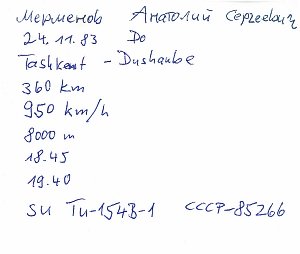 Мерменов Анатолий Сергеевич
24.11.83 Do
Tashkent - Dushanbe
360 km
950 km/h
8000 m
18.45
19.40
SU Tu-154B-1 СССР-85266